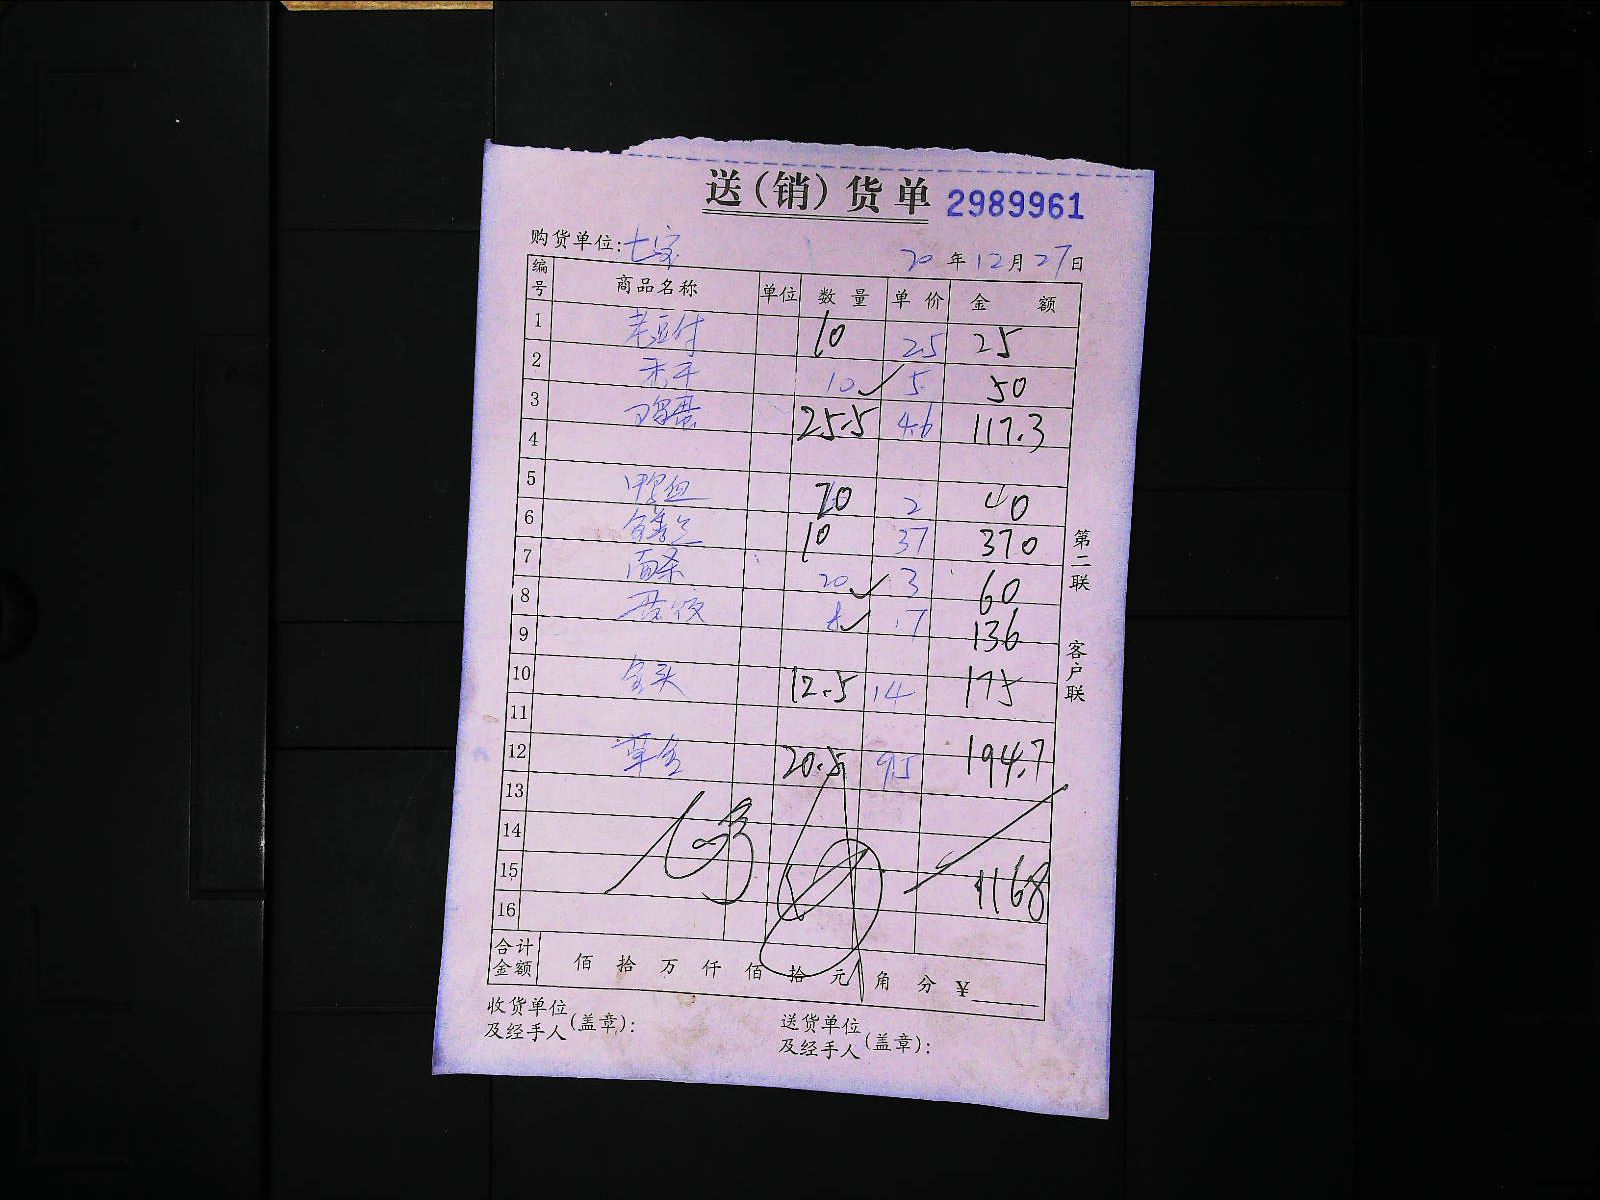 送(销)货单 2989961
购货单位:七宝 20年12月27日
编号 商品名称 单位 数量 单价 金额
1 老豆付 10 2.5 25
2 10 5 50
3 鸡蛋 25.5 4.6 117.3
4
5 鸭血 20 2 40
6 10 37 370
7 面条 20 3 60
8 蛋饺 8 17 136
9
10 12.5 14 175
11
12 20.5 9.5 194.7
13
14
15 1168
16
合计金额 佰 拾 万 仟 佰 拾 元 角 分 ¥
收货单位及经手人(盖章):
送货单位及经手人(盖章):
第二联 客户联